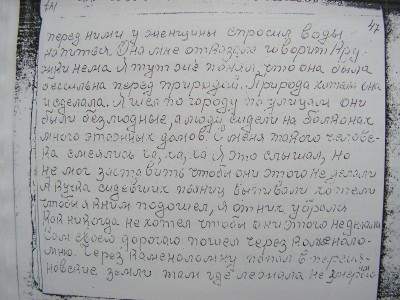 47
перед ними у женщины спросил воды
напиться. Она мне отказала говорит кру-
жки нема я тут же понял, что она была
бессильна перед природой. Природа хотела она
и сделала. Я шел по городу по улицам они
были безлюдные, а люди сидели на болконах
много этожных домов. С меня такого челове-
ка смеялись ха, ха, ха я это слышал, но
не мог заставить чтобы они этого не делали
А кучка сидевших пьяниц выпивали хотели
чтобы я к ним подошел, я от них убрался
как никогда не хотел чтобы они этого не делали
сам своей дорогою пошел через каменоло-
мню. Через каменоломню попал в персия-
новские земли там где лежала не